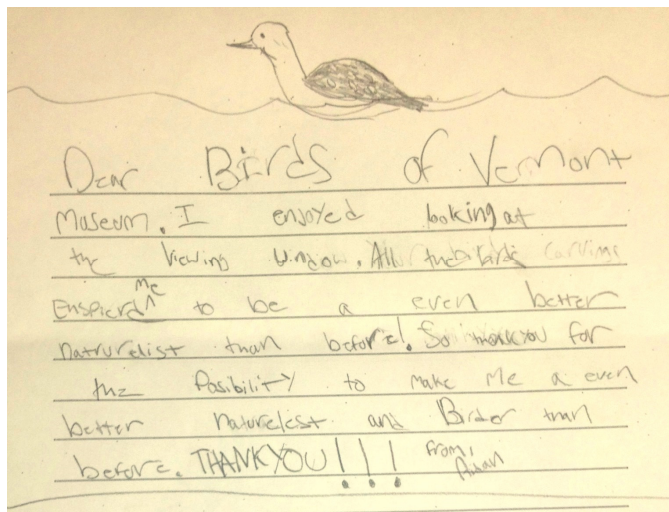 Dear Birds of Vermont
Museum. I enjoyed looking at
the viewing window. All the birds carvings
Enspierd me to be a even better
natrurelist than before! So thankyou for
the Posibility to make me a even
better naturelest and Birder than
before. THANKYOU!!! from,